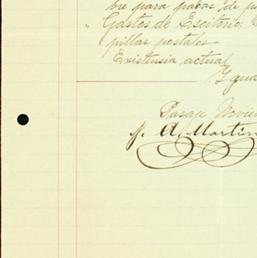 bre para pagas de
" Gastos de Escritorio
pillas postales
Existensia actual
Igua
Pasaje Novie
J. A. Martin